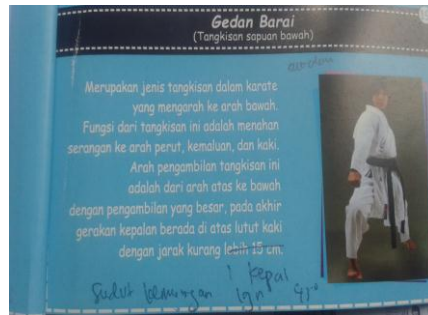 Gedan Barai
(Tangkisan sapuan bawah)
Merupakan jenis tangkisan dalam karate
yang mengarah ke arah bawah.
Fungsi dari tangkisan ini adalah menahan
serangan ke arah perut, kemaluan, dan kaki.
Arah pengambilan tangkisan ini
adalah dari arah atas ke bawah
dengan pengambilan yang besar, pada akhir
gerakan kepalan berada di atas lutut kaki
dengan jarak kurang lebih 15 cm.
1 kepal
Sudut